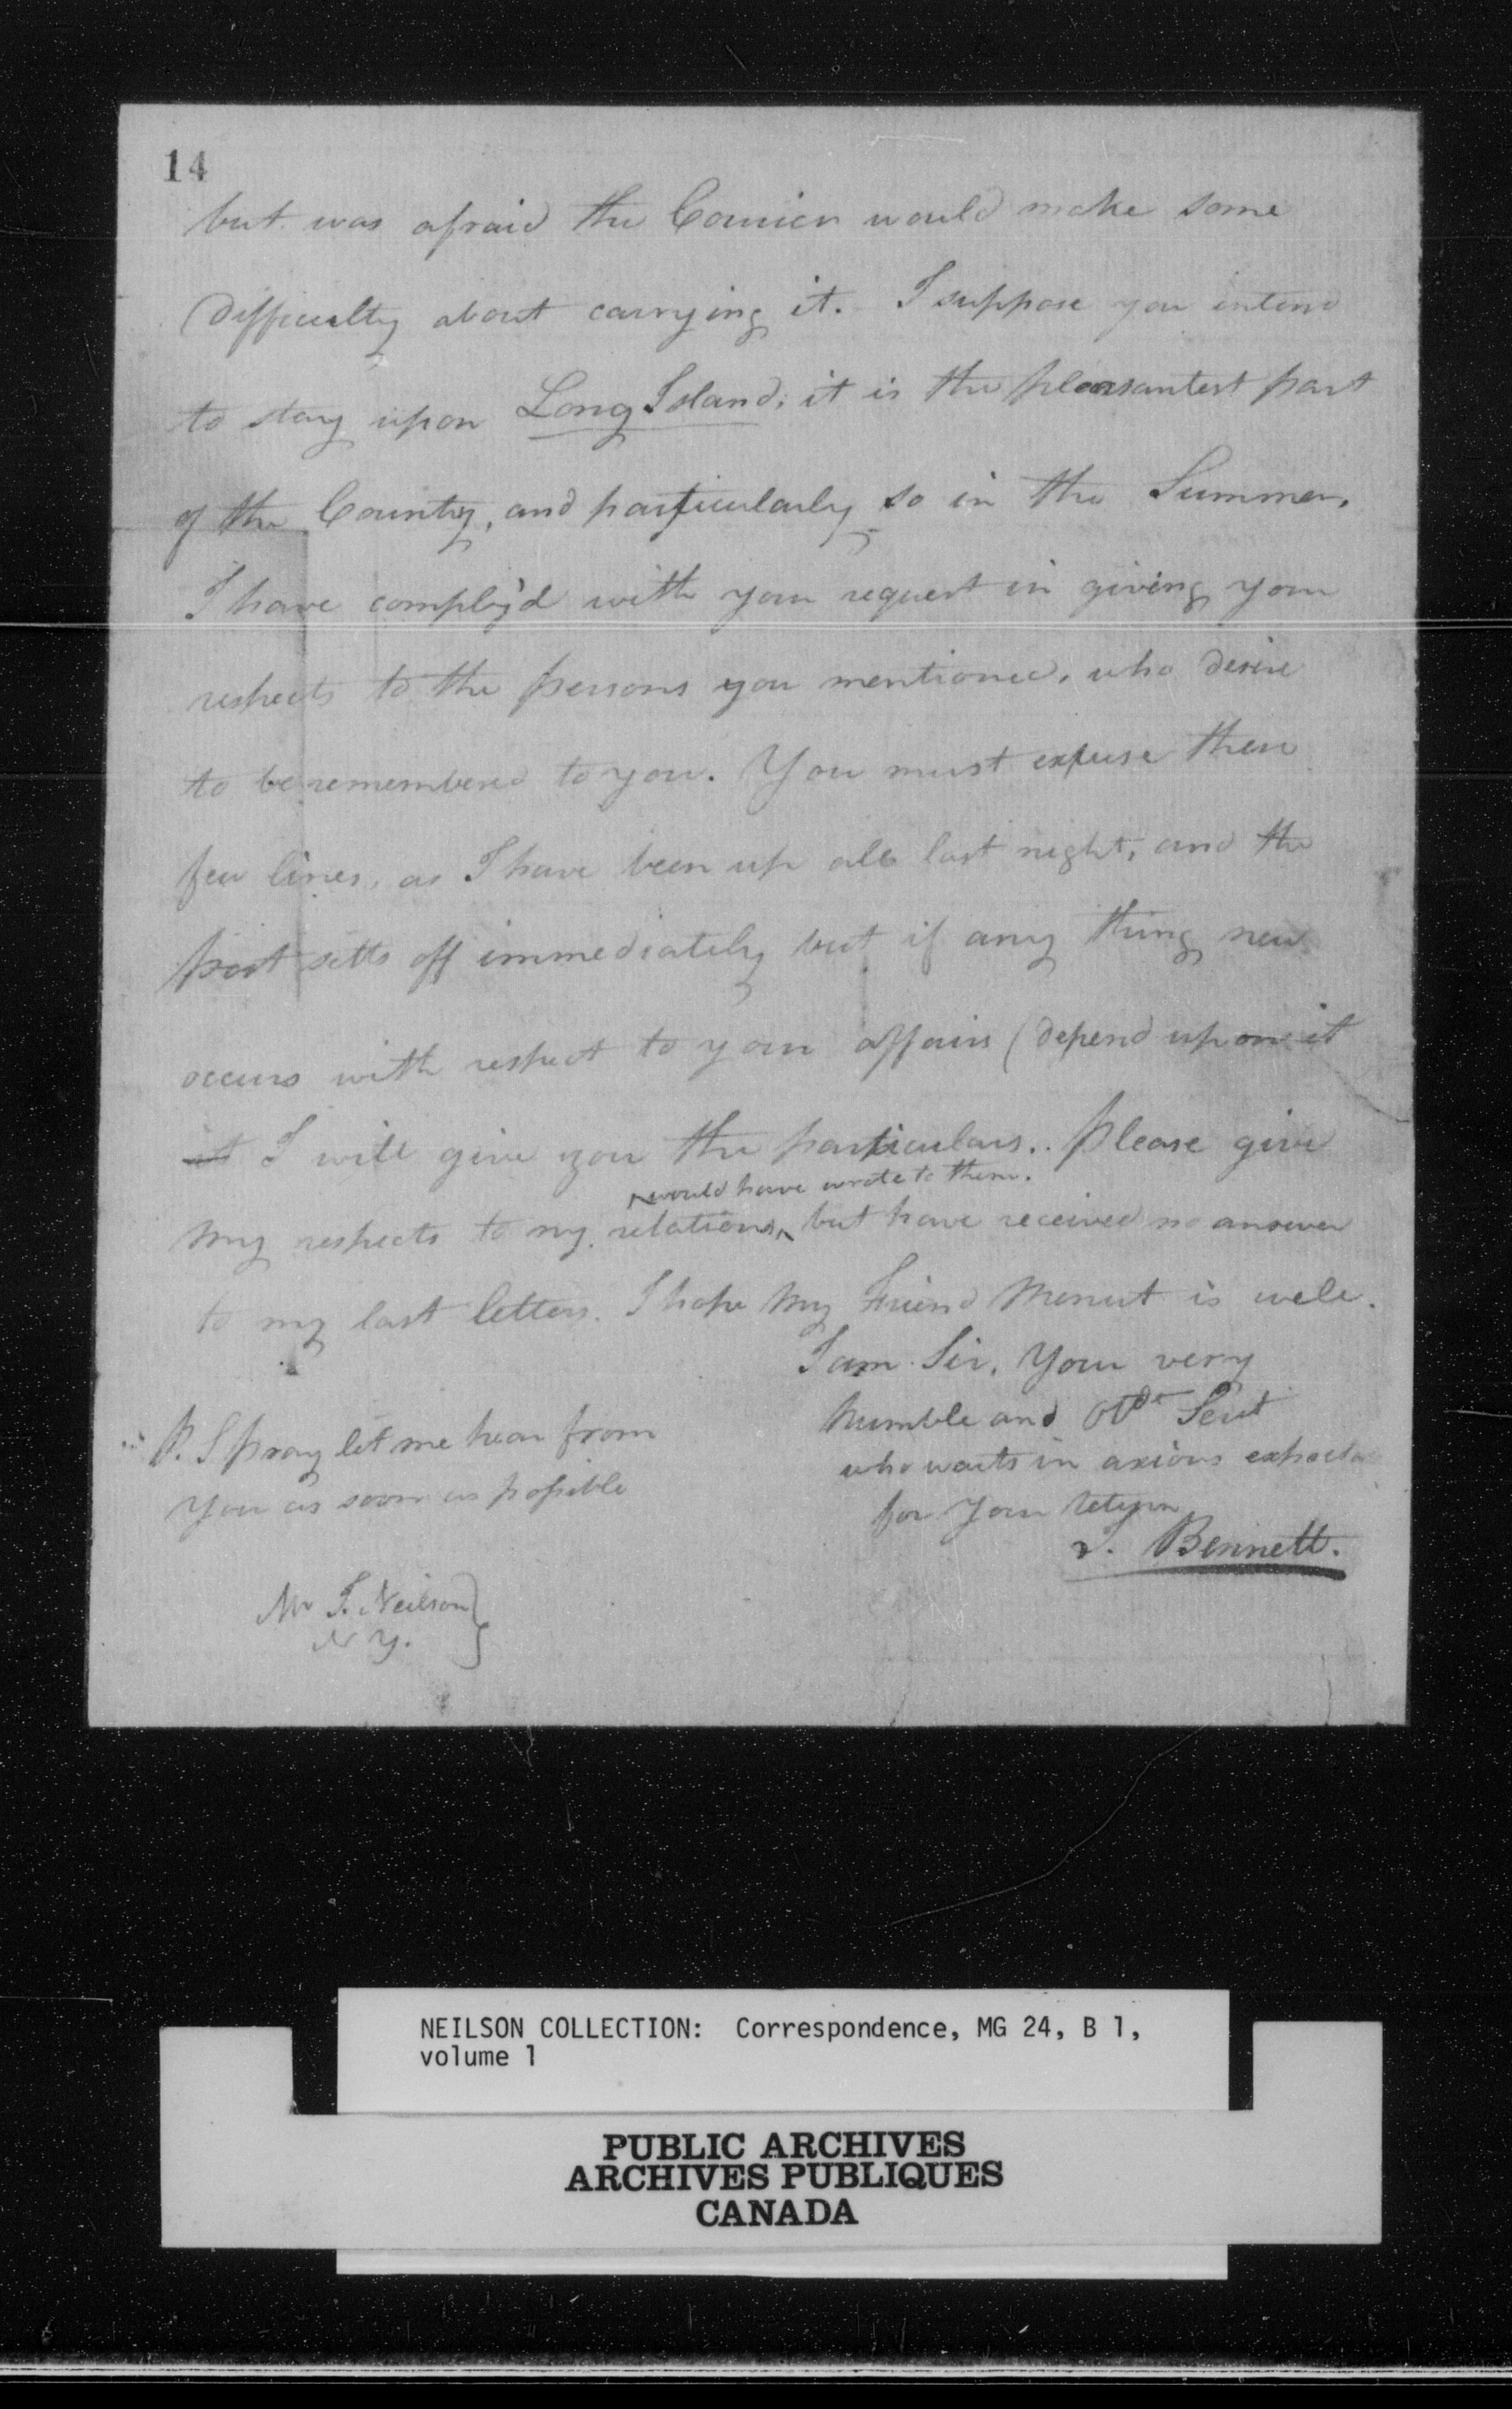 14
but was afraid the Courier would make some
Difficulty about carrying it. I suppose you intend
to stay upon Long Island; it is the pleasantest part
of the Country, and particularly so in the Summer.
I have comply'd with your request in giving your
respects to the persons you mentioned, who desire
to be remembered to you. You must excuse these
few lines, as I have been up all last night, and the
post setts off immediately but if any thing new
occurs with respect to your affairs (depend upon it
it I will give you the particulars.. Please give
would have wrote to them.
my respects to my relations, but have received no answer
to my last letters. I hope my Friend Menut is well.
I am Sir, Your very
humble and Obdt Servt
who waits in axious expecta
for Your return
Bennett.
P. S pray let me hear from
You as soon as possible
Mr Neilson
N Y.
NEILSON COLLECTION: Correspondence, MG 24, B 1,
volume 1
PUBLIC ARCHIVES
ARCHIVES PUBLIQUES
CANADA